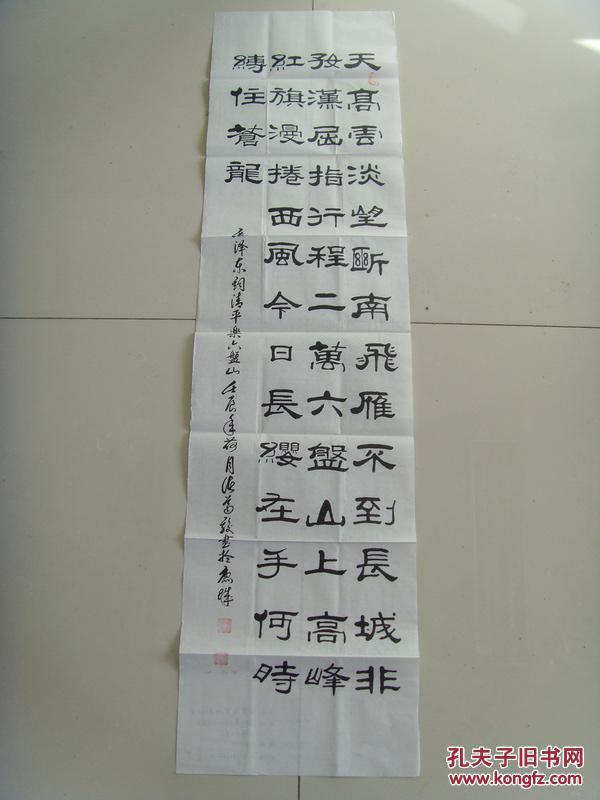 天高云淡望断南飛雁不到長城非
好漢屈指行程二萬六盤山上高峰
紅旗漫捲西風今日長纓在手何時
縛住蒼龍
毛泽东詞清平樂六盤山壬辰年荷月
孔夫子旧书网
www.kongfz.com